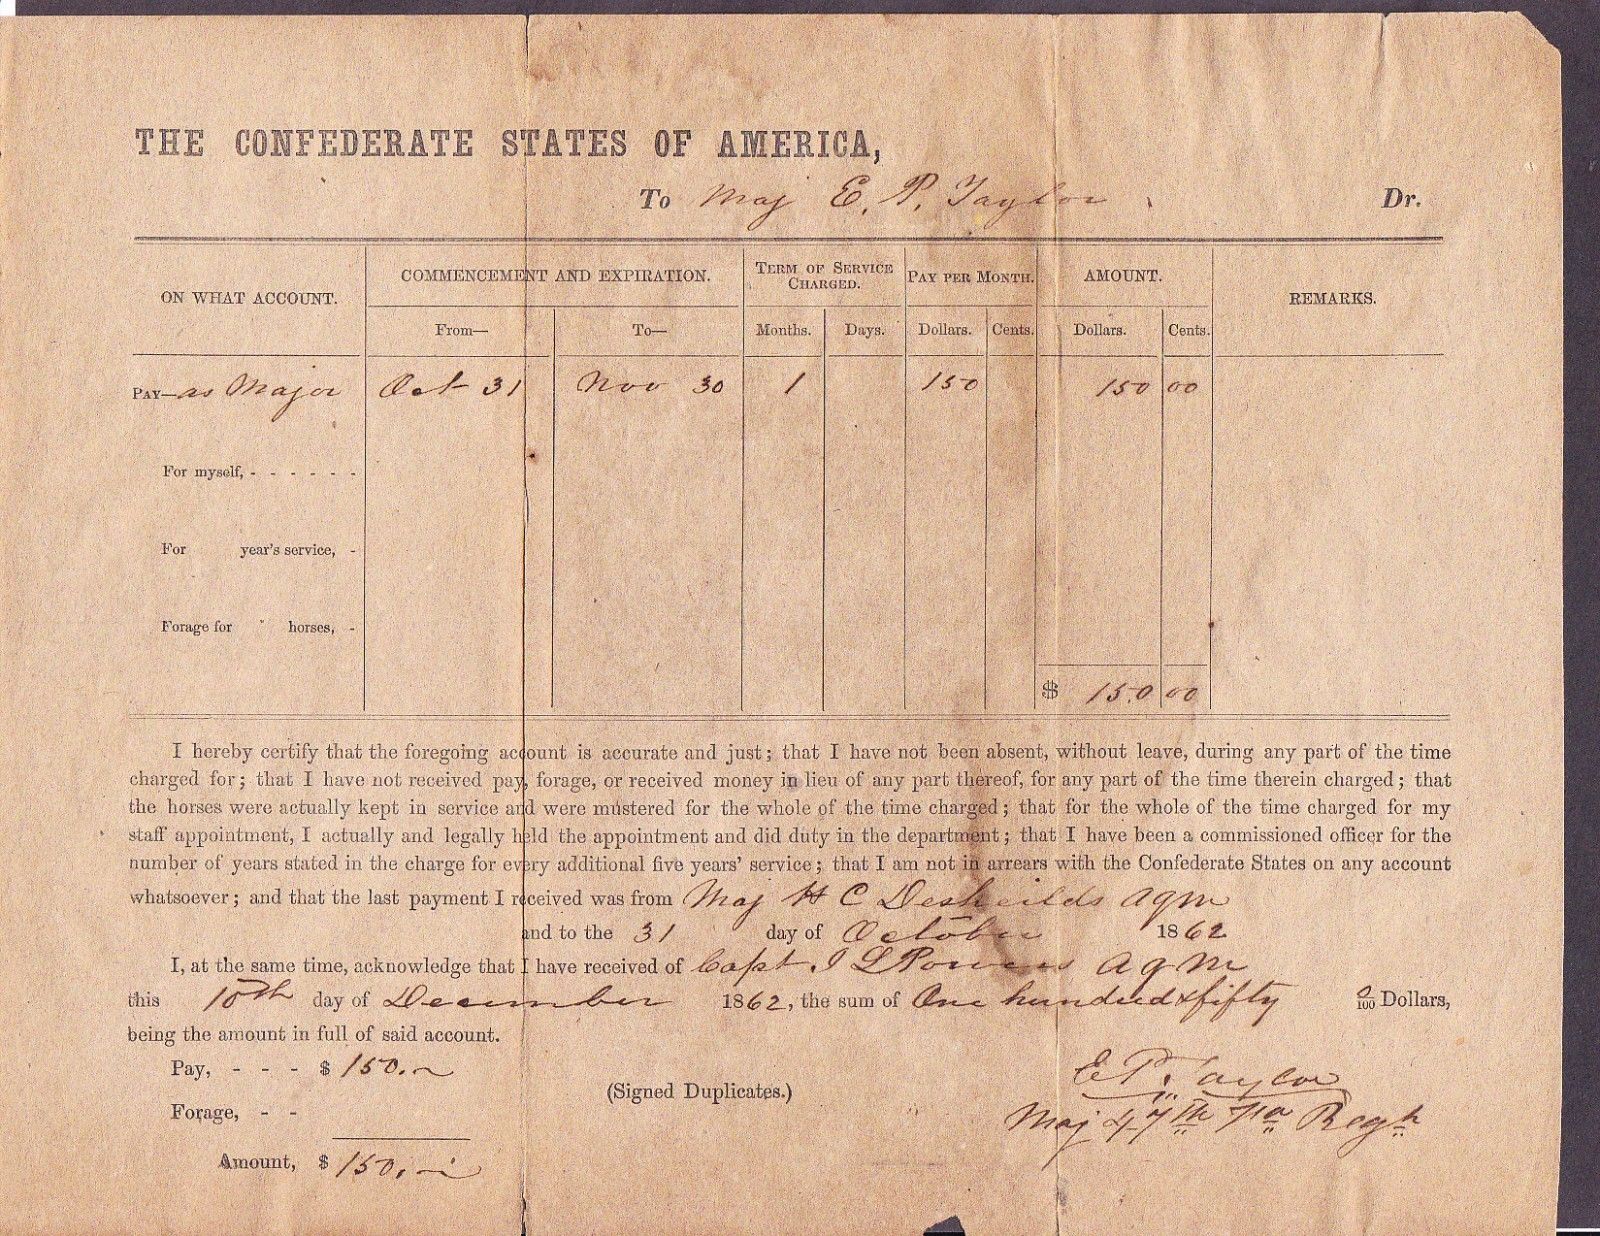 THE CONFEDERATE STATES OF AMERICA,
To Maj E. P. Taylor Dr.
ON WHAT ACCOUNT. COMMENCEMENT AND EXPIRATION. TERM OF SERVICE CHARGED. PAY PER MONTH. AMOUNT. REMARKS.
From— To— Months. Days. Dollars. Cents. Dollars. Cents.
PAY—as Major Oct 31 Nov 30 1 150 150 00
For myself, - - - - - -
For year's service, -
Forage for horses, -
$ 150 00
I hereby certify that the foregoing account is accurate and just; that I have not been absent, without leave, during any part of the time
charged for; that I have not received pay, forage, or received money in lieu of any part thereof, for any part of the time therein charged; that
the horses were actually kept in service and were mustered for the whole of the time charged; that for the whole of the time charged for my
staff appointment, I actually and legally held the appointment and did duty in the department; that I have been a commissioned officer for the
number of years stated in the charge for every additional five years' service; that I am not in arrears with the Confederate States on any account
whatsoever; and that the last payment I received was from Maj H C Desheilds AQM
and to the 31 day of October 1862
I, at the same time, acknowledge that I have received of Capt J L Powens AQM
this 10th day of December 1862, the sum of One hundred & fifty 0/100 Dollars,
being the amount in full of said account.
Pay, - - - $ 150.—
Forage, - -
(Signed Duplicates.)
Amount, $ 150.—
E P. Taylor
Maj 47th Va Regt